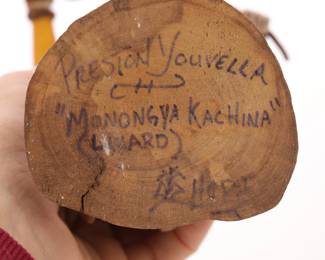 PRESTON YOUVELLA
"MONONGYA KACHINA"
(LIZARD)
HOPI